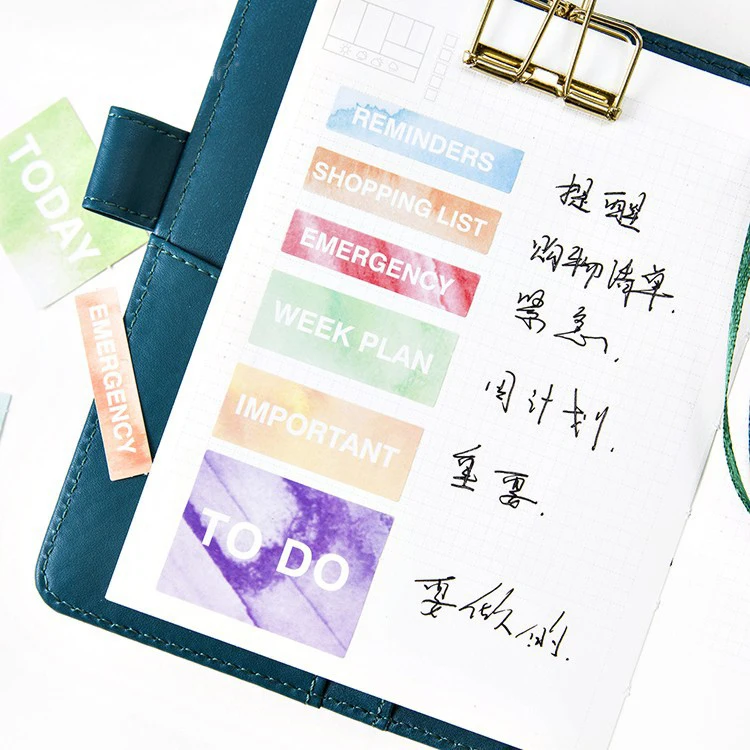 REMINDERS
提醒
SHOPPING LIST
购物清单.
EMERGENCY
紧急.
WEEK PLAN
周计划.
IMPORTANT
重要.
TO DO
要做的.
TODAY
EMERGENCY